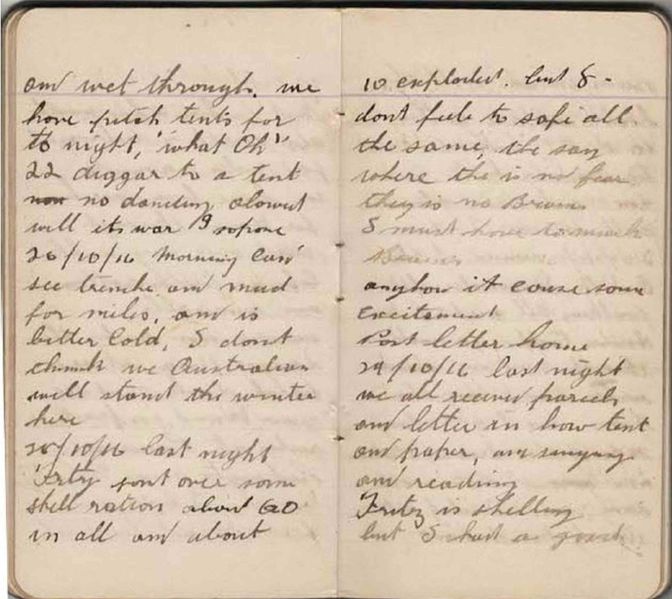 and wet through. we
have pitch tents for
to night, "what Oh"
22 diggar to a tent
no dancing alowed
will its war I sopose
26/10/16 Morning Can
see trenche and mud
for miles, and is
bitter Cold, I dont
think we Australian
will stand the winter
here
28/10/16 last night
Fritz sent over some
shell ration about 60
in all and about
10 exploded. but I
dont feele to safe all
the same, the say
where the is no fear
they is no Brains
I must have to much
Brains
anyhow it couse some
Excitement
Post letter home
29/10/16 last night
we all received parcels
and letter in how tent
and paper, am singing
and reading
Fritz is shelling
but I had a good